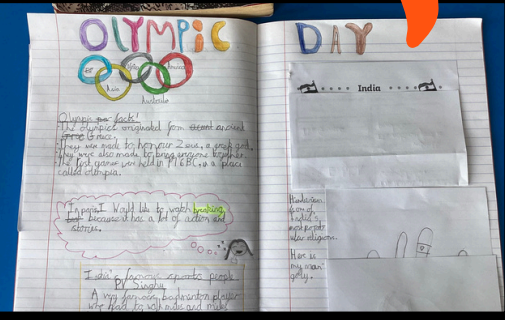 OLYMPIC DAY
Europe
Africa
America
Asia
Australia
Olympic facts!
The olympics originated from ancient
Greece.
They were made to honour Zeus, a greek god.
They were also made to bring everyone together.
The first games were held in 776BC, in a place
called olympia.
In paris I would like to watch breaking
because it has a lot of action and
stories.
India's famous sports people
PV Sindhu
A very famous badminton player
who had to
India
Hinduism
is one of
India's
most popu
ular religions.
Here is
my